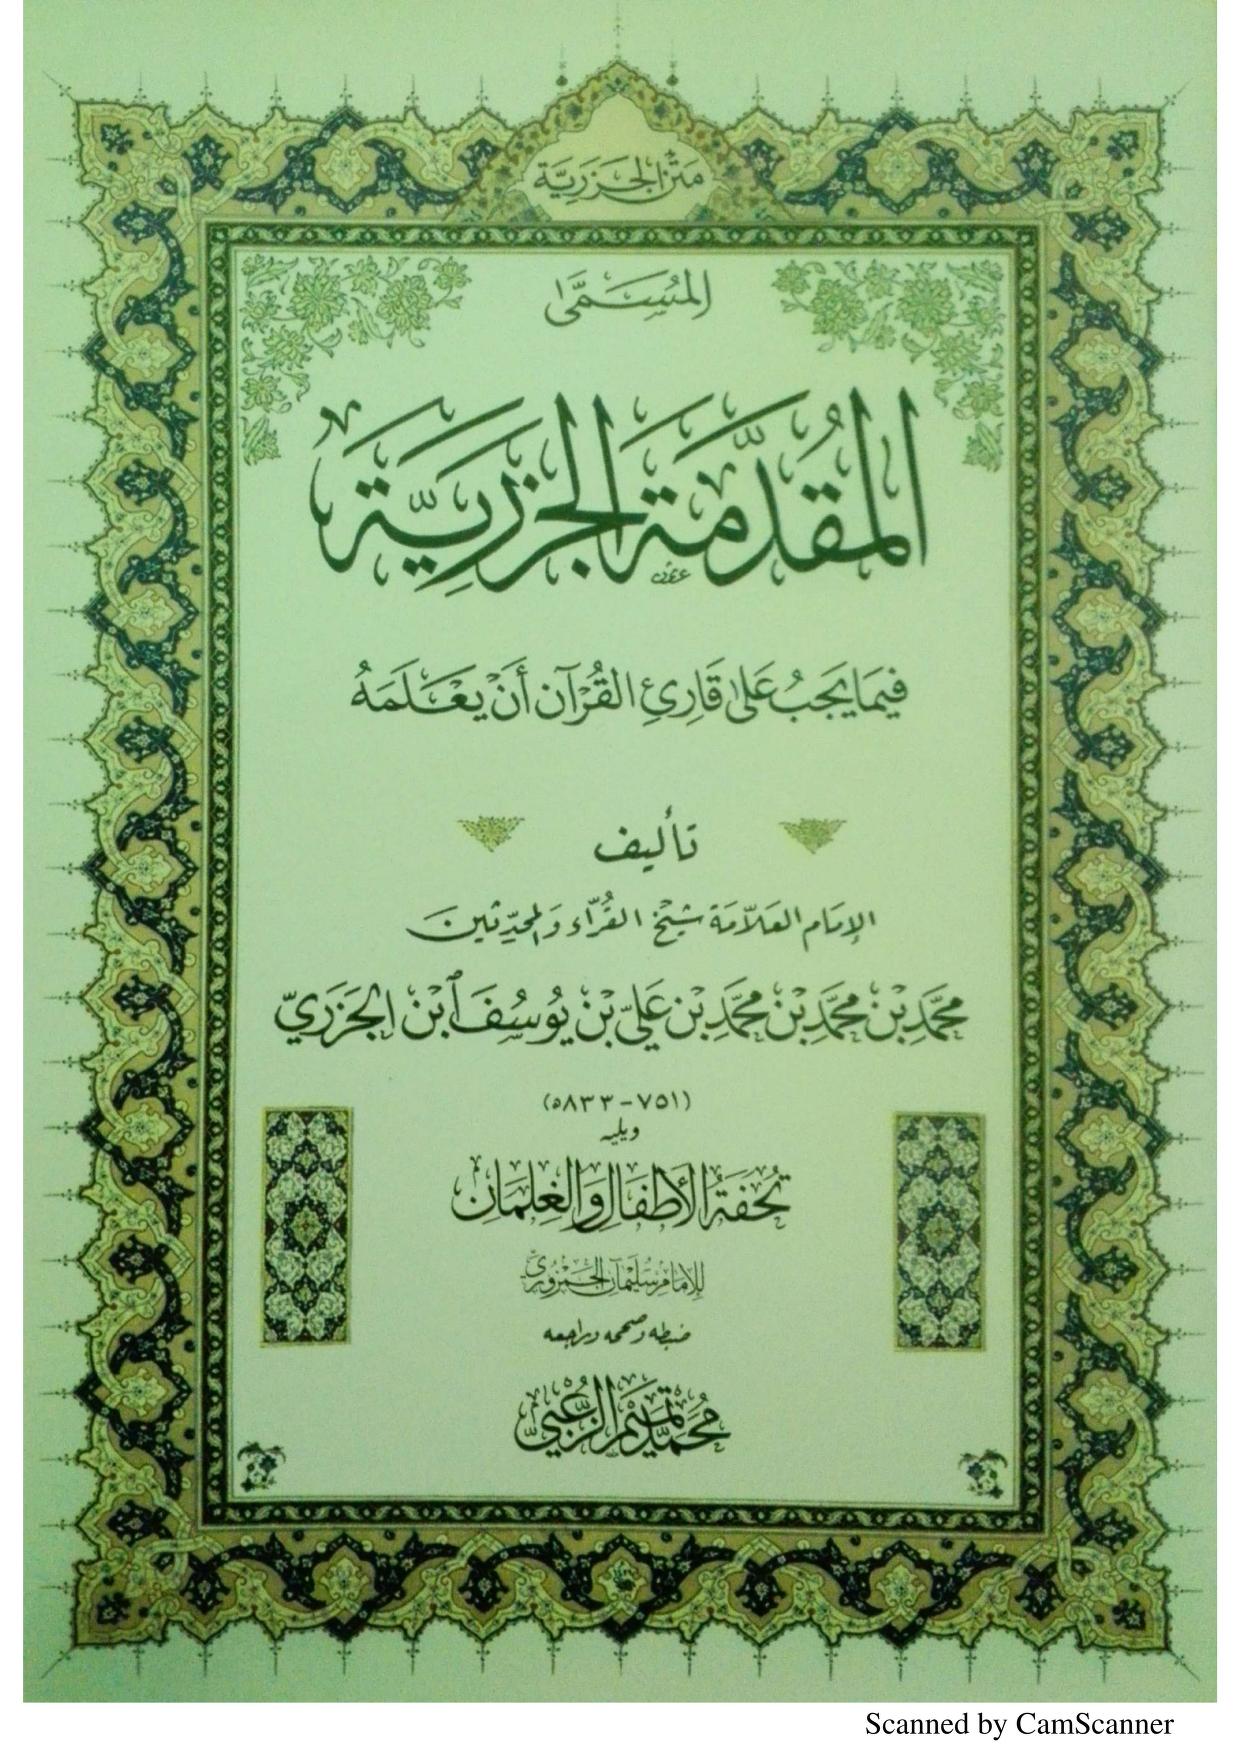 مَتْنُ الجَزَرِيَّة
المُسَمَّى
المُقَدِّمَةُ الجَزَرِيَّةَ
فِيمَا يَجِبُ عَلَى قَارِئِ القُرْآنِ أَنْ يَعْلَمَهُ
تأليف
الإمَام العَلّامَة شَيْخ القُرّاء وَالمحَدِّثين
مُحَمَّد بْن مُحَمَّد بْن مُحَمَّد بْن عَلِيّ بْن يُوسُفَ ٱبْن الجَزَرِيّ
(٧٥١-٨٣٣ه)
ويليه
تُحْفَةُ الأَطْفَالِ وَالغِلْمَان
للإمَام سُلَيْمَان الجَمْزُورِيّ
ضبطه وصححه وراجعه
مُحَمَّد تَمِيم الزُّعْبِيّ
Scanned by CamScanner